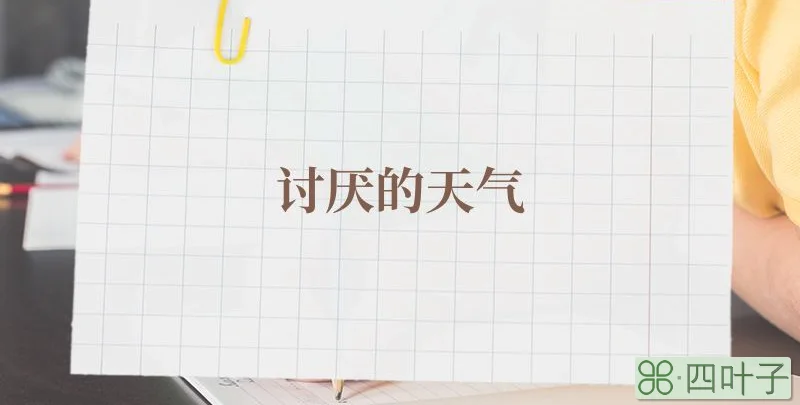 讨厌的天气
⌘·四叶子